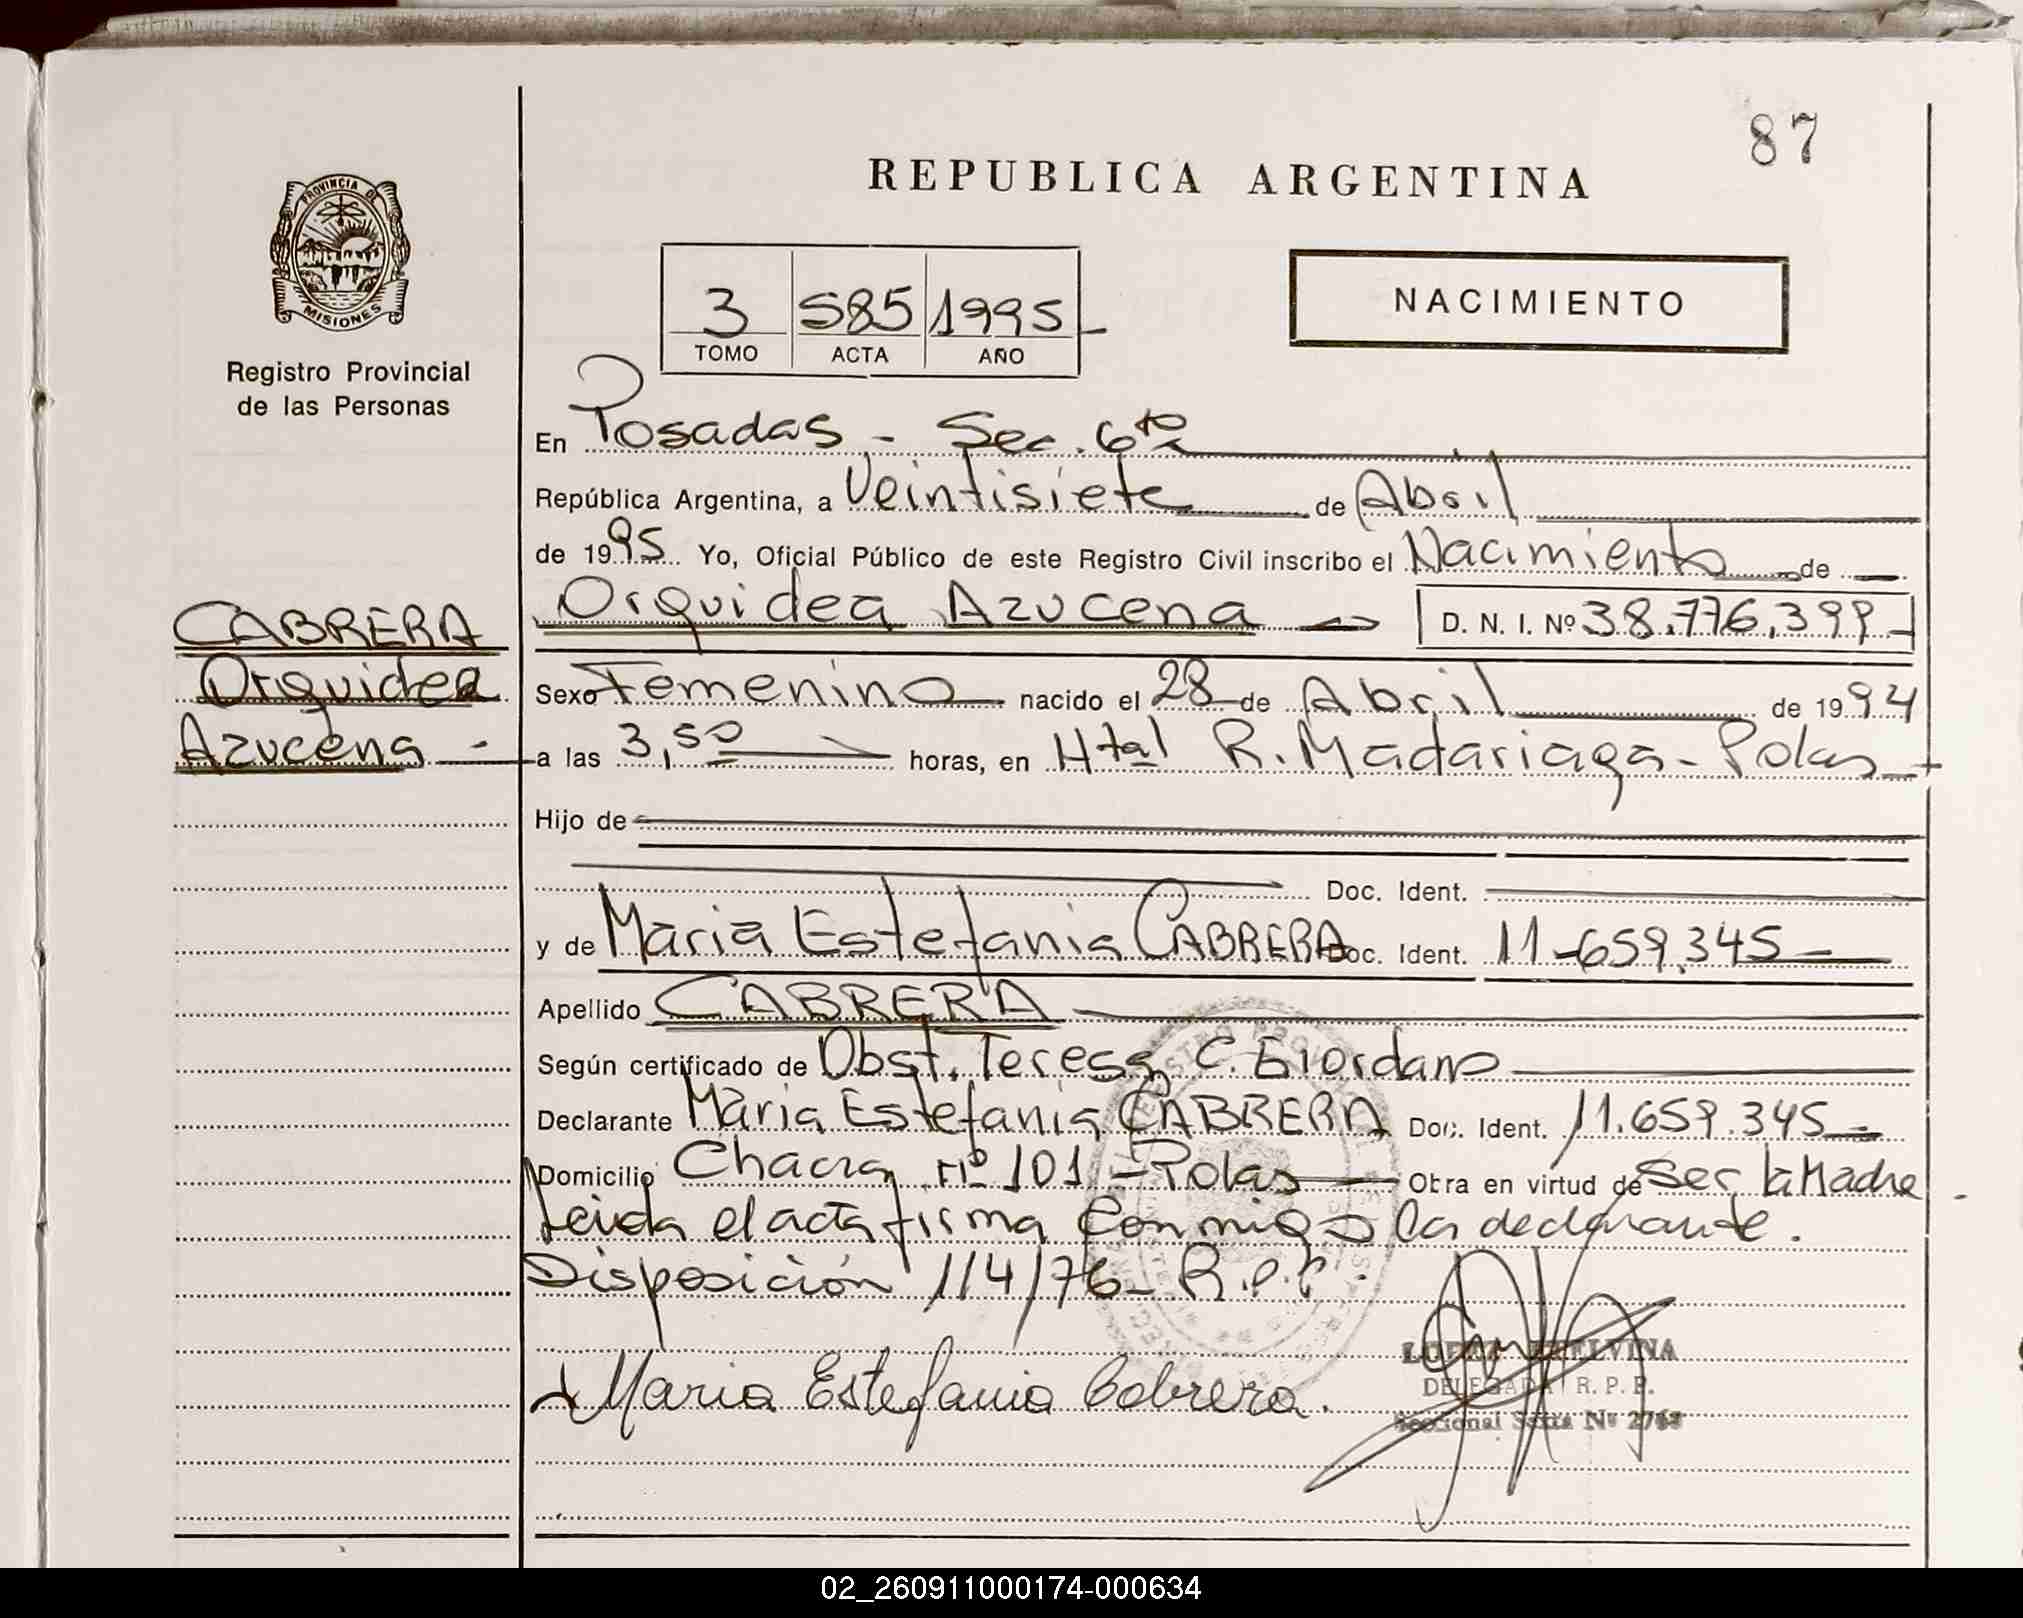 87
REPUBLICA ARGENTINA
PROVINCIA DE
MISIONES
Registro Provincial
de las Personas
3 585 1995
TOMO ACTA AÑO
NACIMIENTO
En Posadas - Sec. 6ta
República Argentina, a Veintisiete de Abril
de 1995 Yo, Oficial Público de este Registro Civil inscribo el Nacimiento de
CABRERA
Orquidea
Azucena -
Orquidea Azucena D. N. I. Nº 38.776.399
Sexo Femenino nacido el 28 de Abril de 1994
a las 3,50 horas, en Htal R. Madariaga - Pdas
Hijo de
Doc. Ident.
y de Maria Estefania CABRERA Doc. Ident. 11.659.345
Apellido CABRERA
Según certificado de Obst. Teresa C. Giordano
Declarante Maria Estefania CABRERA Doc. Ident. 11.659.345
Domicilio Chacra nº 101 - Pdas Obra en virtud de ser la Madre
Leida el acta firma conmigo la declarante.
Disposición 114/76 - R.P.P.
Maria Estefania Cabrera.
LOPEZ
DELEGADA R. P. P.
Seccional Sexta Nº
02_260911000174-000634